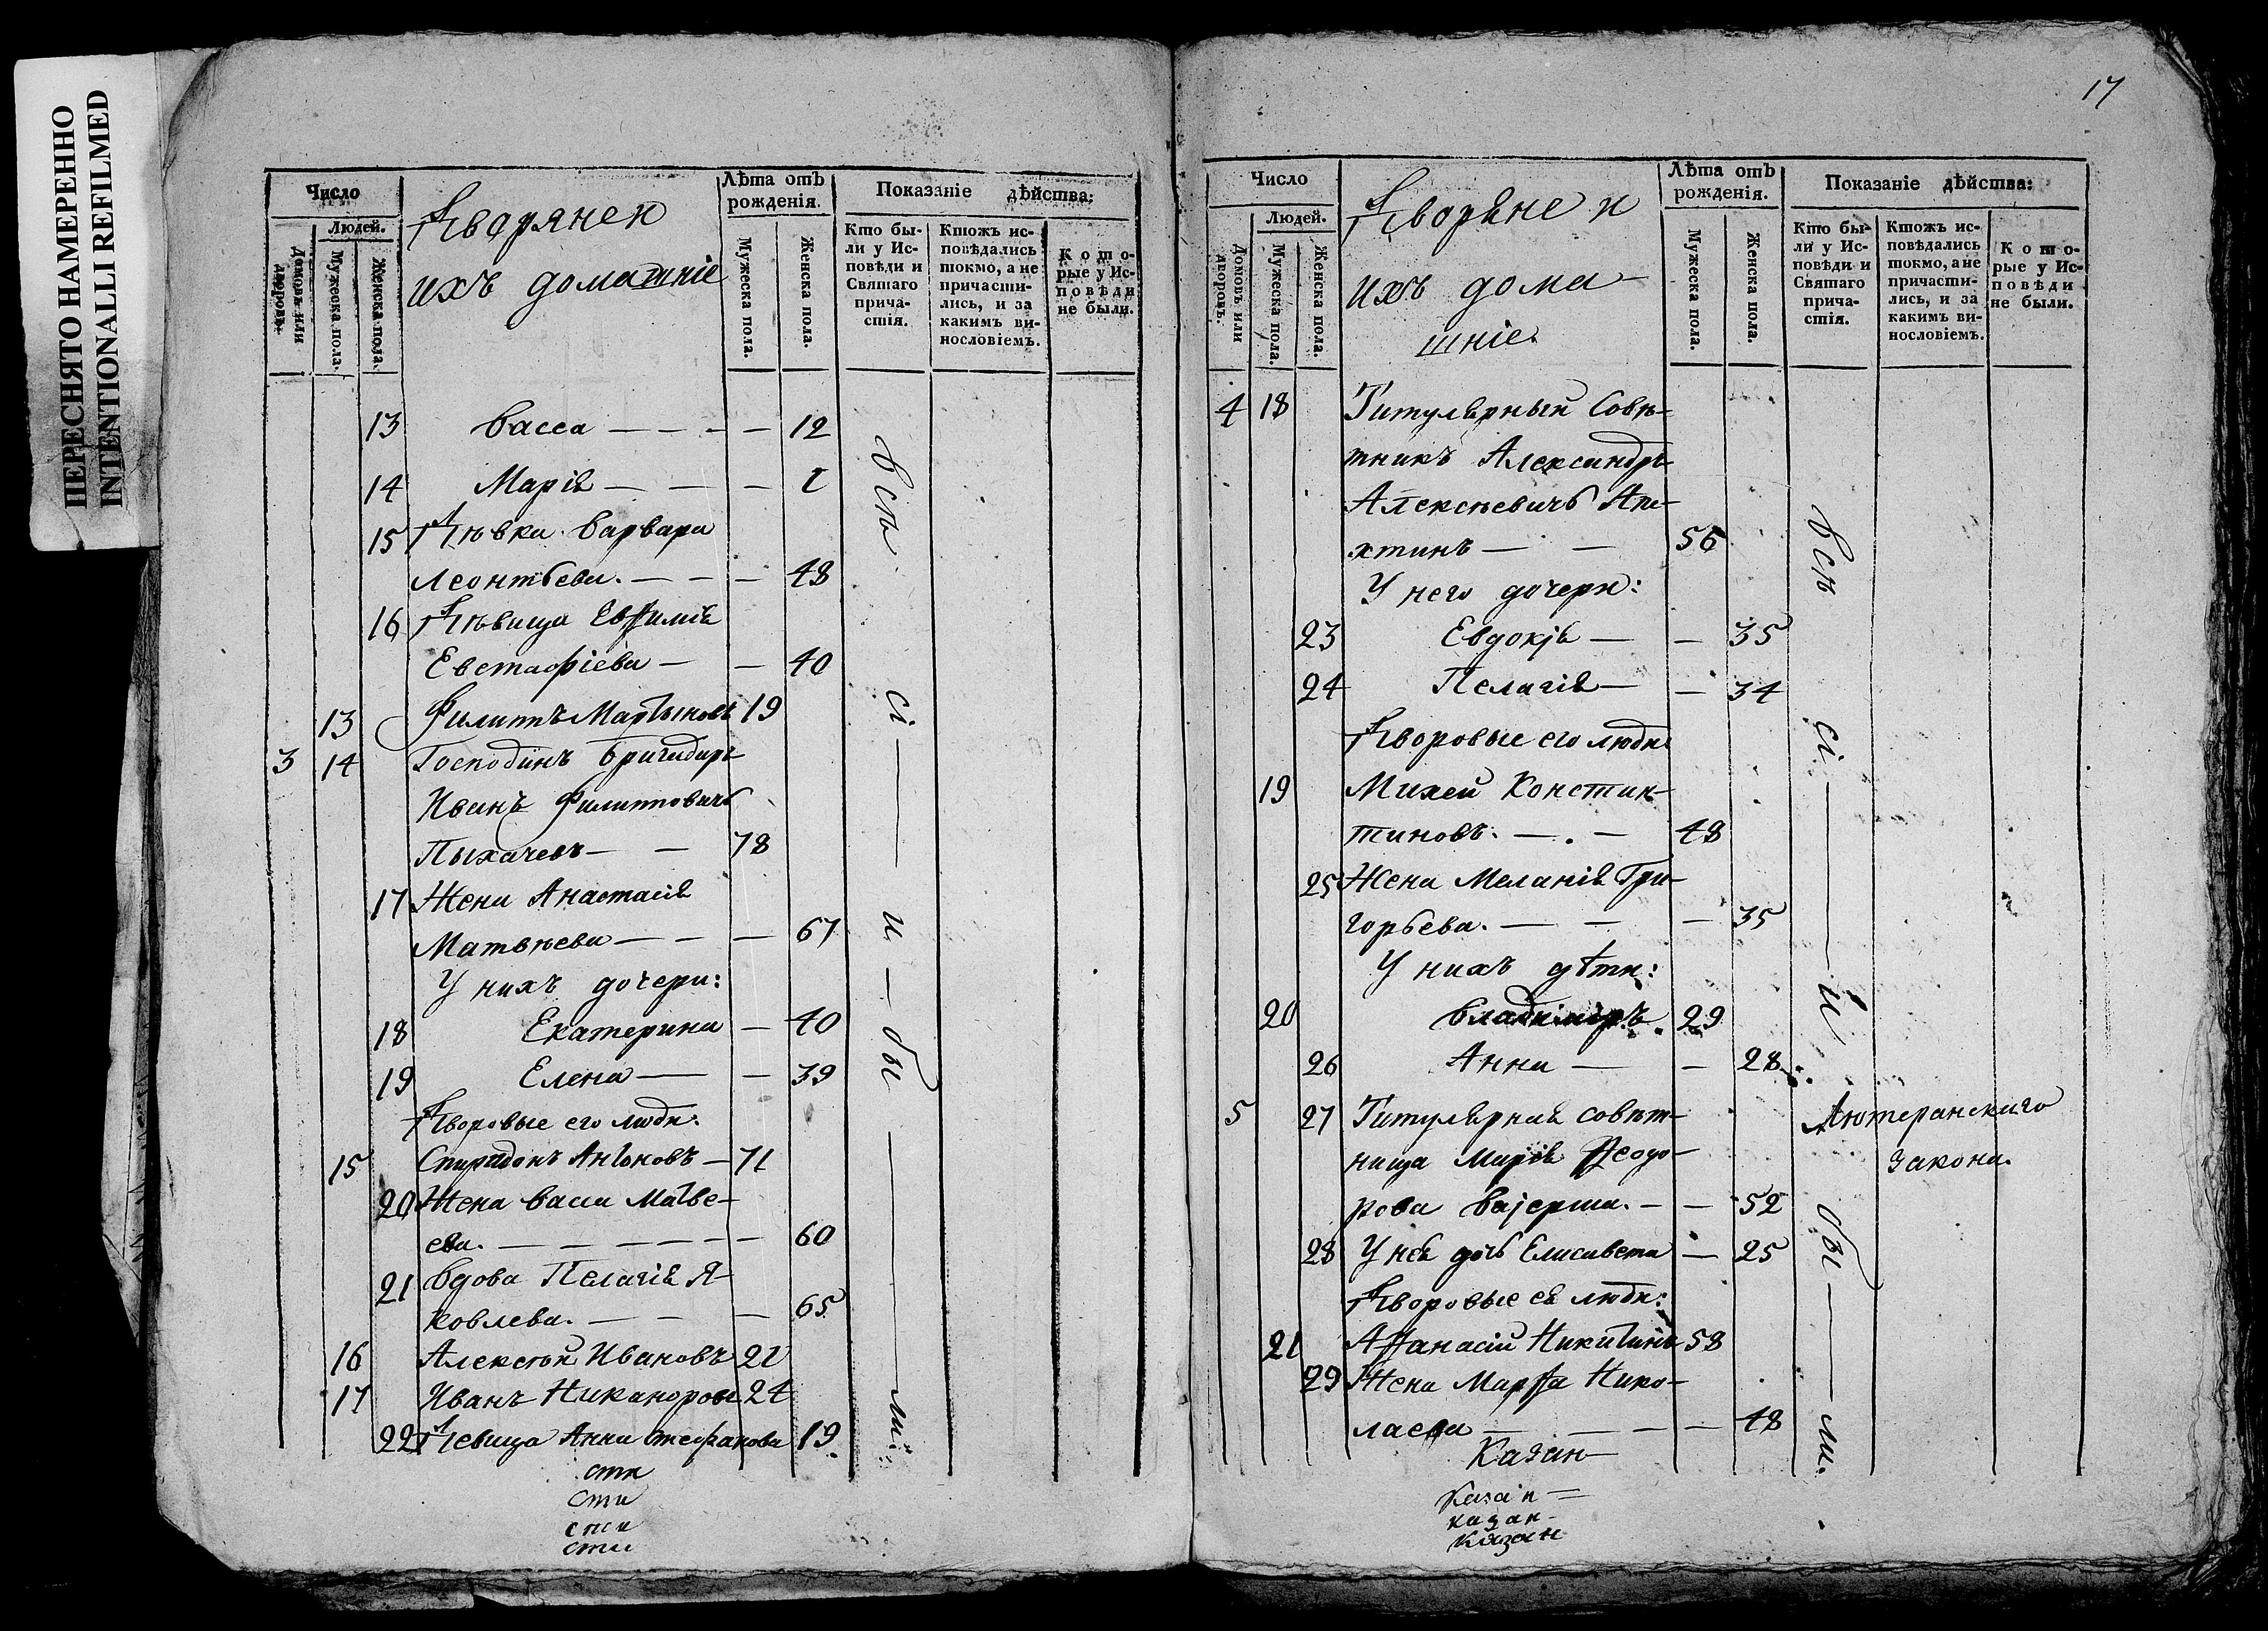 ПЕРЕСНЯТО НАМЕРЕННО
INTENTIONALLI REFILMED
Число
Людей.
Домовъ или дворовъ.
Мужеска пола.
Женска пола.
Дворянеи
ихъ домашніе
Лѣта отъ рожденія.
Мужеска пола.
Женска пола.
Показаніе дѣйства:
Кто бы-
ли у Ис-
повѣди и
Святаго
прича-
стія.
Ктожъ ис-
повѣдались
токмо, а не
причасти-
лись, и за
какимъ ви-
нословіемъ.
Кото-
рые у Ис-
повѣди
не были.
13 Васса — — — — 12
14 Марія — — —
15 Дѣвка Варвара
Леонтьева. — — — 48
16 Дѣвица Евѳимія
Евстафіева — — 40
13 Филиппъ Мартыновъ 19
3 14 Господинъ Бригадиръ
Иванъ Филипповичъ
Пыхачевъ — — 78
17 Жена Анастасія
Матвѣева — — — 67
У нихъ дочери:
18 Екатерина — 40
19 Елена — — 39
Дворовые его люди:
15 Спиридонъ Антоновъ — 71
20 Жена Васса Матве-
ева. — — — — — — 60
21 Вдова Пелагія Я-
ковлева. — — — 65
16 Алексѣй Ивановъ 21
17 Иванъ Никаноровъ 24
22 Девица Анна Стефанова 19
всѣ сі — и — бы — ли.
сти
сти
сти
сти
17
Число
Людей.
Домовъ или дворовъ.
Мужеска пола.
Женска пола.
Дворяне и
ихъ дома-
шніе.
Лѣта отъ рожденія.
Мужеска пола.
Женска пола.
Показаніе дѣйства:
Кто бы-
ли у Ис-
повѣди и
Святаго
прича-
стія.
Ктожъ ис-
повѣдались
токмо, а не
причасти-
лись, и за
какимъ ви-
нословіемъ.
Кото-
рые у Ис-
повѣди
не были.
4 18 Титулярный Совѣ-
тникъ Александръ
Алексѣевичъ Апы-
хтинъ — — 56
У него дочери:
23 Евдокія — — 35
24 Пелагія — — 34
Дворовые его люди
19 Михей Констан-
тиновъ. — . — 48
25 Жена Меланія Гри-
горьева. — — — 35
У нихъ дѣти:
20 Владиміръ. 29
26 Анна — — 28
5 27 Титулярная совѣт-
ница Марія Ѳеодо-
рова Вајерша. — — 52
28 У нея дочь Елисавета — 25
Дворовые ея люди:
21 Аѳанасій Никитинъ 58
29 Жена Марѳа Нико-
лаева — — — — 48
всѣ сі — и бы — ли.
Лютеранскаго
закона.
Казан—
Казан —
казан —
Казан